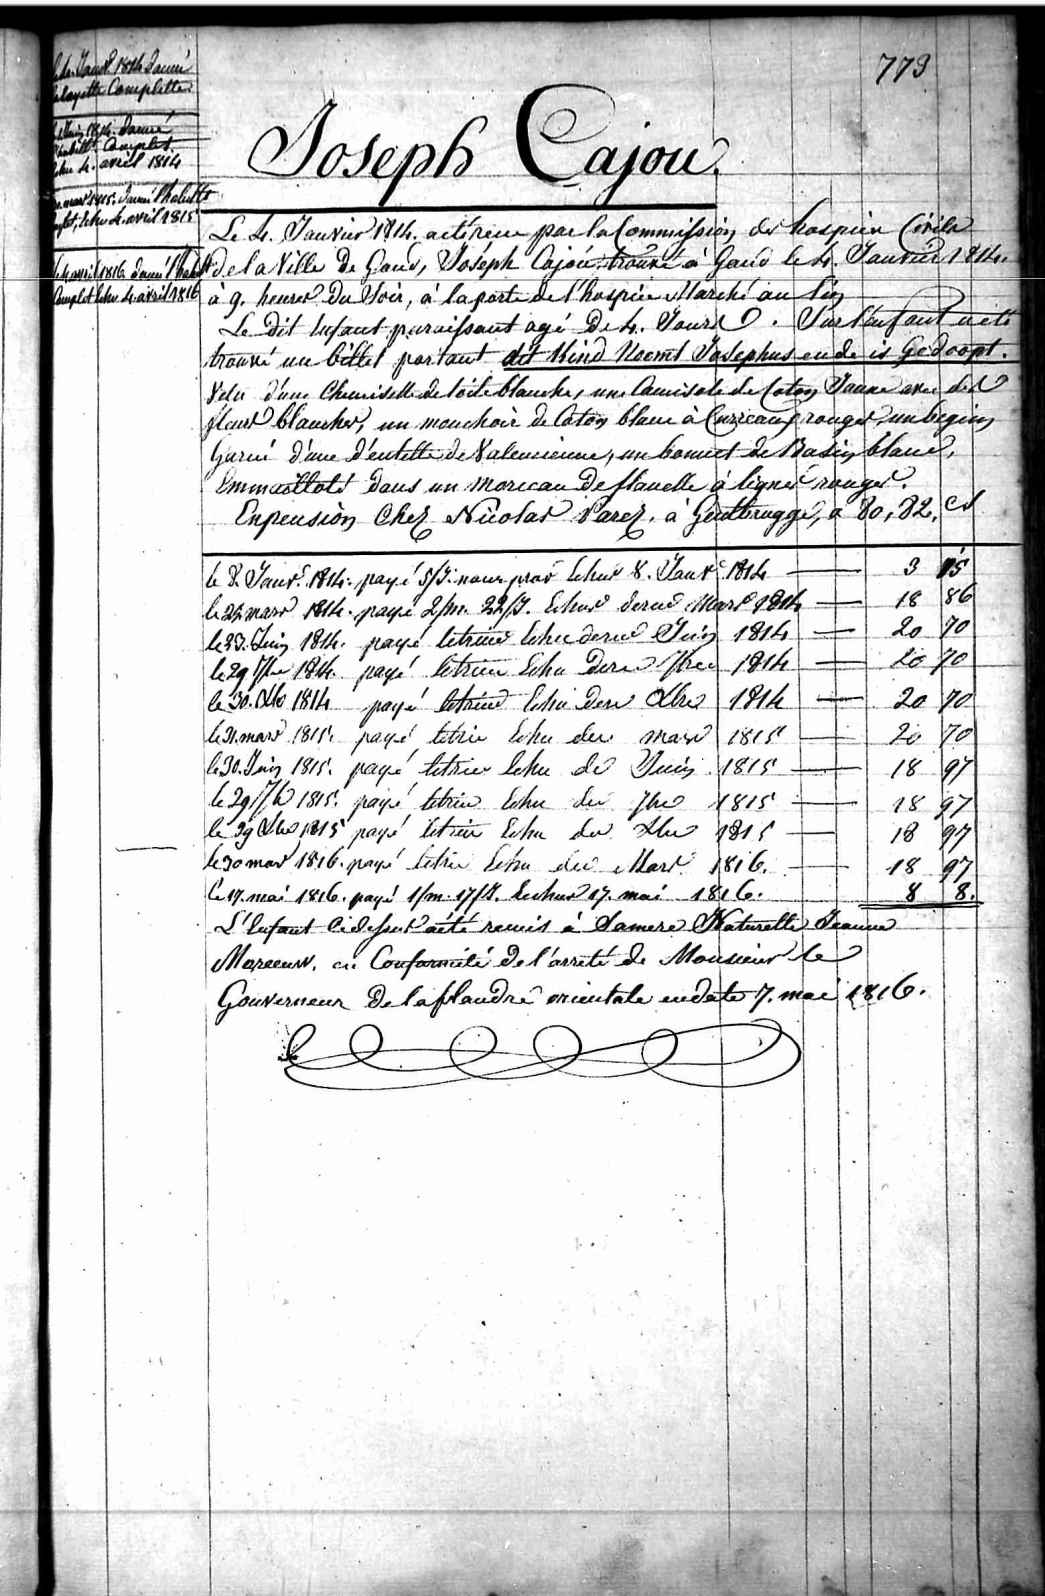 773
le 4. Janvr 1814 Donné
la layette Complette
Juin 1814. Donné
l'habillt Complet.
Echu 4. avril 1814
mars 1815. Donné l'habillt
Complet, Echu 4 avril 1815
le 4 avril 1816 donné l'habillt
Complet Echu 4 avril 1816
Joseph Cajou.
Le 4. Janvier 1814. a été recu par la Commission des hospices Civils
de la Ville de Gand, Joseph Cajou. trouvé à Gand le 4. Janvier 1814.
à 9. heures Du Soir, à la porte de l'hospice Marché au lin
Le dit Enfant paraissant agé De 4. Jours. Sur l'enfant a été
trouvé un billet portant dit Kind Noemt Josephus ende is Gedoopt.
Vetu d'une Chemisette de toile blanche, une Camisole de Coton Jaune avec des
fleurs blanches, un mouchoir de Coton blanc à Carreaux rouges, un beguin
Garni d'une d'entelle de Valencienne, un bonnet de Basin blanc,
Emmailloté dans un morceau de flanelle à lignes rouges.
En pension Chez Nicolas Varez. à Gentbrugge, a 80, 82. Cs
le 8. Janvr. 1814. payé 5/J. nourr prov Echus 8. Janvr 1814 3 15
le 24 mars 1814. payé 2/m. 22/J. Echus derne Mars 1814 18 86
le 23. Juin 1814. payé letrime Echu derne Juin 1814 20 70
le 29 7bre 1814 payé letrime Echu Dere 7bre 1814 20 70
le 30. Xbre 1814 payé letrime Echu Dere Xbre 1814 20 70
le 31. mars 1815. payé letrie Echu der mars 1815 20 70
le 30. Juin 1815. payé letrie Echu de Juin 1815 18 97
le 29 7bre 1815. payé letrie Echu de 7bre 1815 18 97
le 29 Xbre 1815 payé letrie Echu de Xbre 1815 18 97
le 30 mars 1816. payé letrie Echu de Mars 1816. 18 97
le 17. mai 1816. payé 1/m. 17/J. Echus 17. mai 1816. 8 8.
L'Enfant Ci dessus a été remis à Samere Naturelle Jeanne
en Conformité De l'arreté de Monsieur le
Gouverneur De la flandre orientale en date 7. mai 1816.